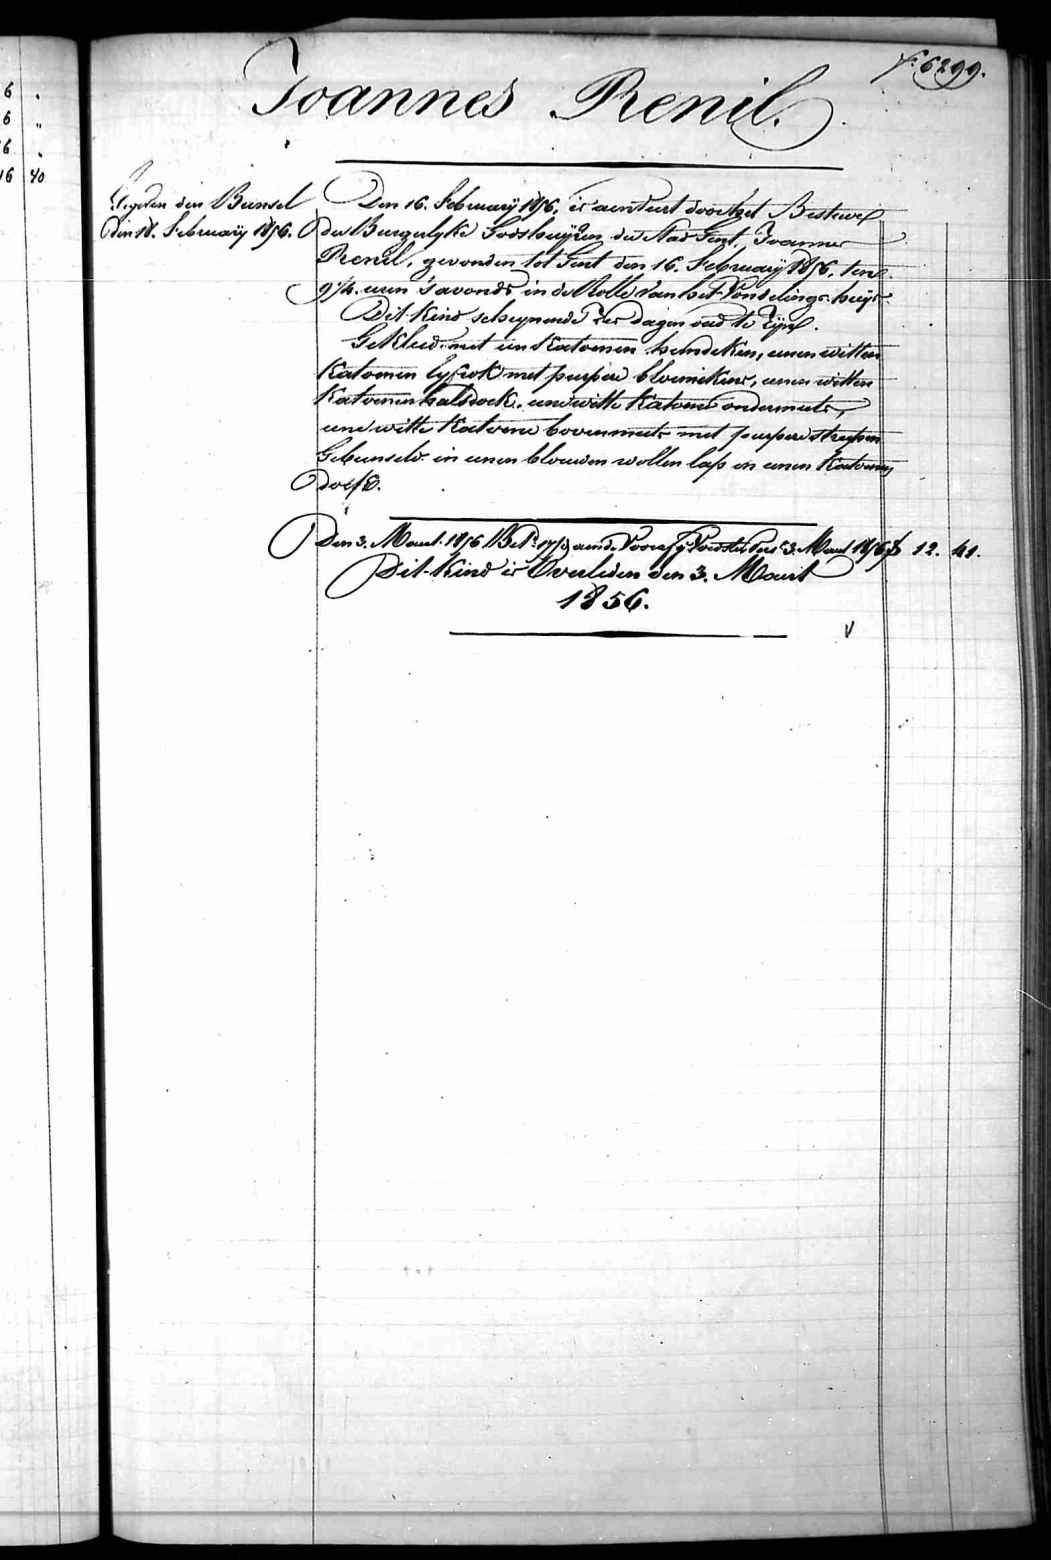 6299.
Joannes Renil.
6
6
16
16 40
den Bunsel
den 18. Februarij 1856.
Den 16. Februarij 1856, is aenveert door het Bestier
der Burgelyke Godshuijzen der Stad Gent, Joannes
Renil, gevonden tot Gent den 16. Februarij 1856, ten
9 1/4 uren 's avonds in de Rolle van het Vondelings-huijs
Dit Kind schynende dagen oud te zijn.
Gekleed met een Katoenen hemdeken, eenen witten
Katoenen lyfrok met purpere bloemekens, eenen witten
Katoenen halsdoek, eene witte Katoene ondermuts,
eene witte Katoene bovenmuts met purpere strepen
Gebunseld in eenen blauwen wollen lap en eenen Katoenen
doek.
Den 3. Maart 1856 Bet. aen de Voorsz. Voedster tus 3 Maart 1856 12. 41.
Dit Kind is Overleden den 3. Maart
1856.